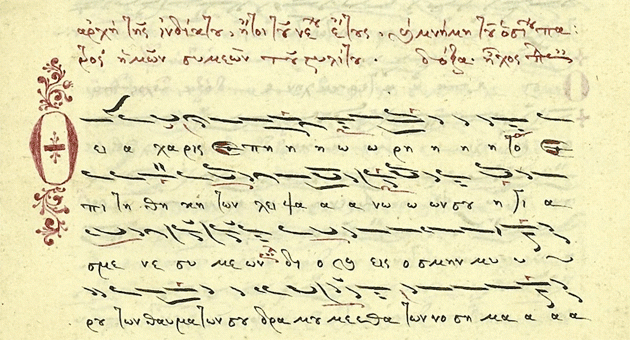 ἀρχὴ τῆς ἰνδίκτου, ἤτοι τοῦ νέου ἔτους, ϗ μνήμη τοῦ ὁσίου πα
τρὸς ἡμῶν συμεὼν τοῦ στυλίτου. δόξα. ἦχος
Θ ει α χαρις ε πη η η ω ω ρη η η η το ε
πι τη θη κη των λει ψα α α νω ω ων σου η γι α
σμε νε συ με ων δι ο ϗ εις ο σμην μυ υ υ
ρου των θαυματων σου δρα μου με εθα των νο ση μα α α α